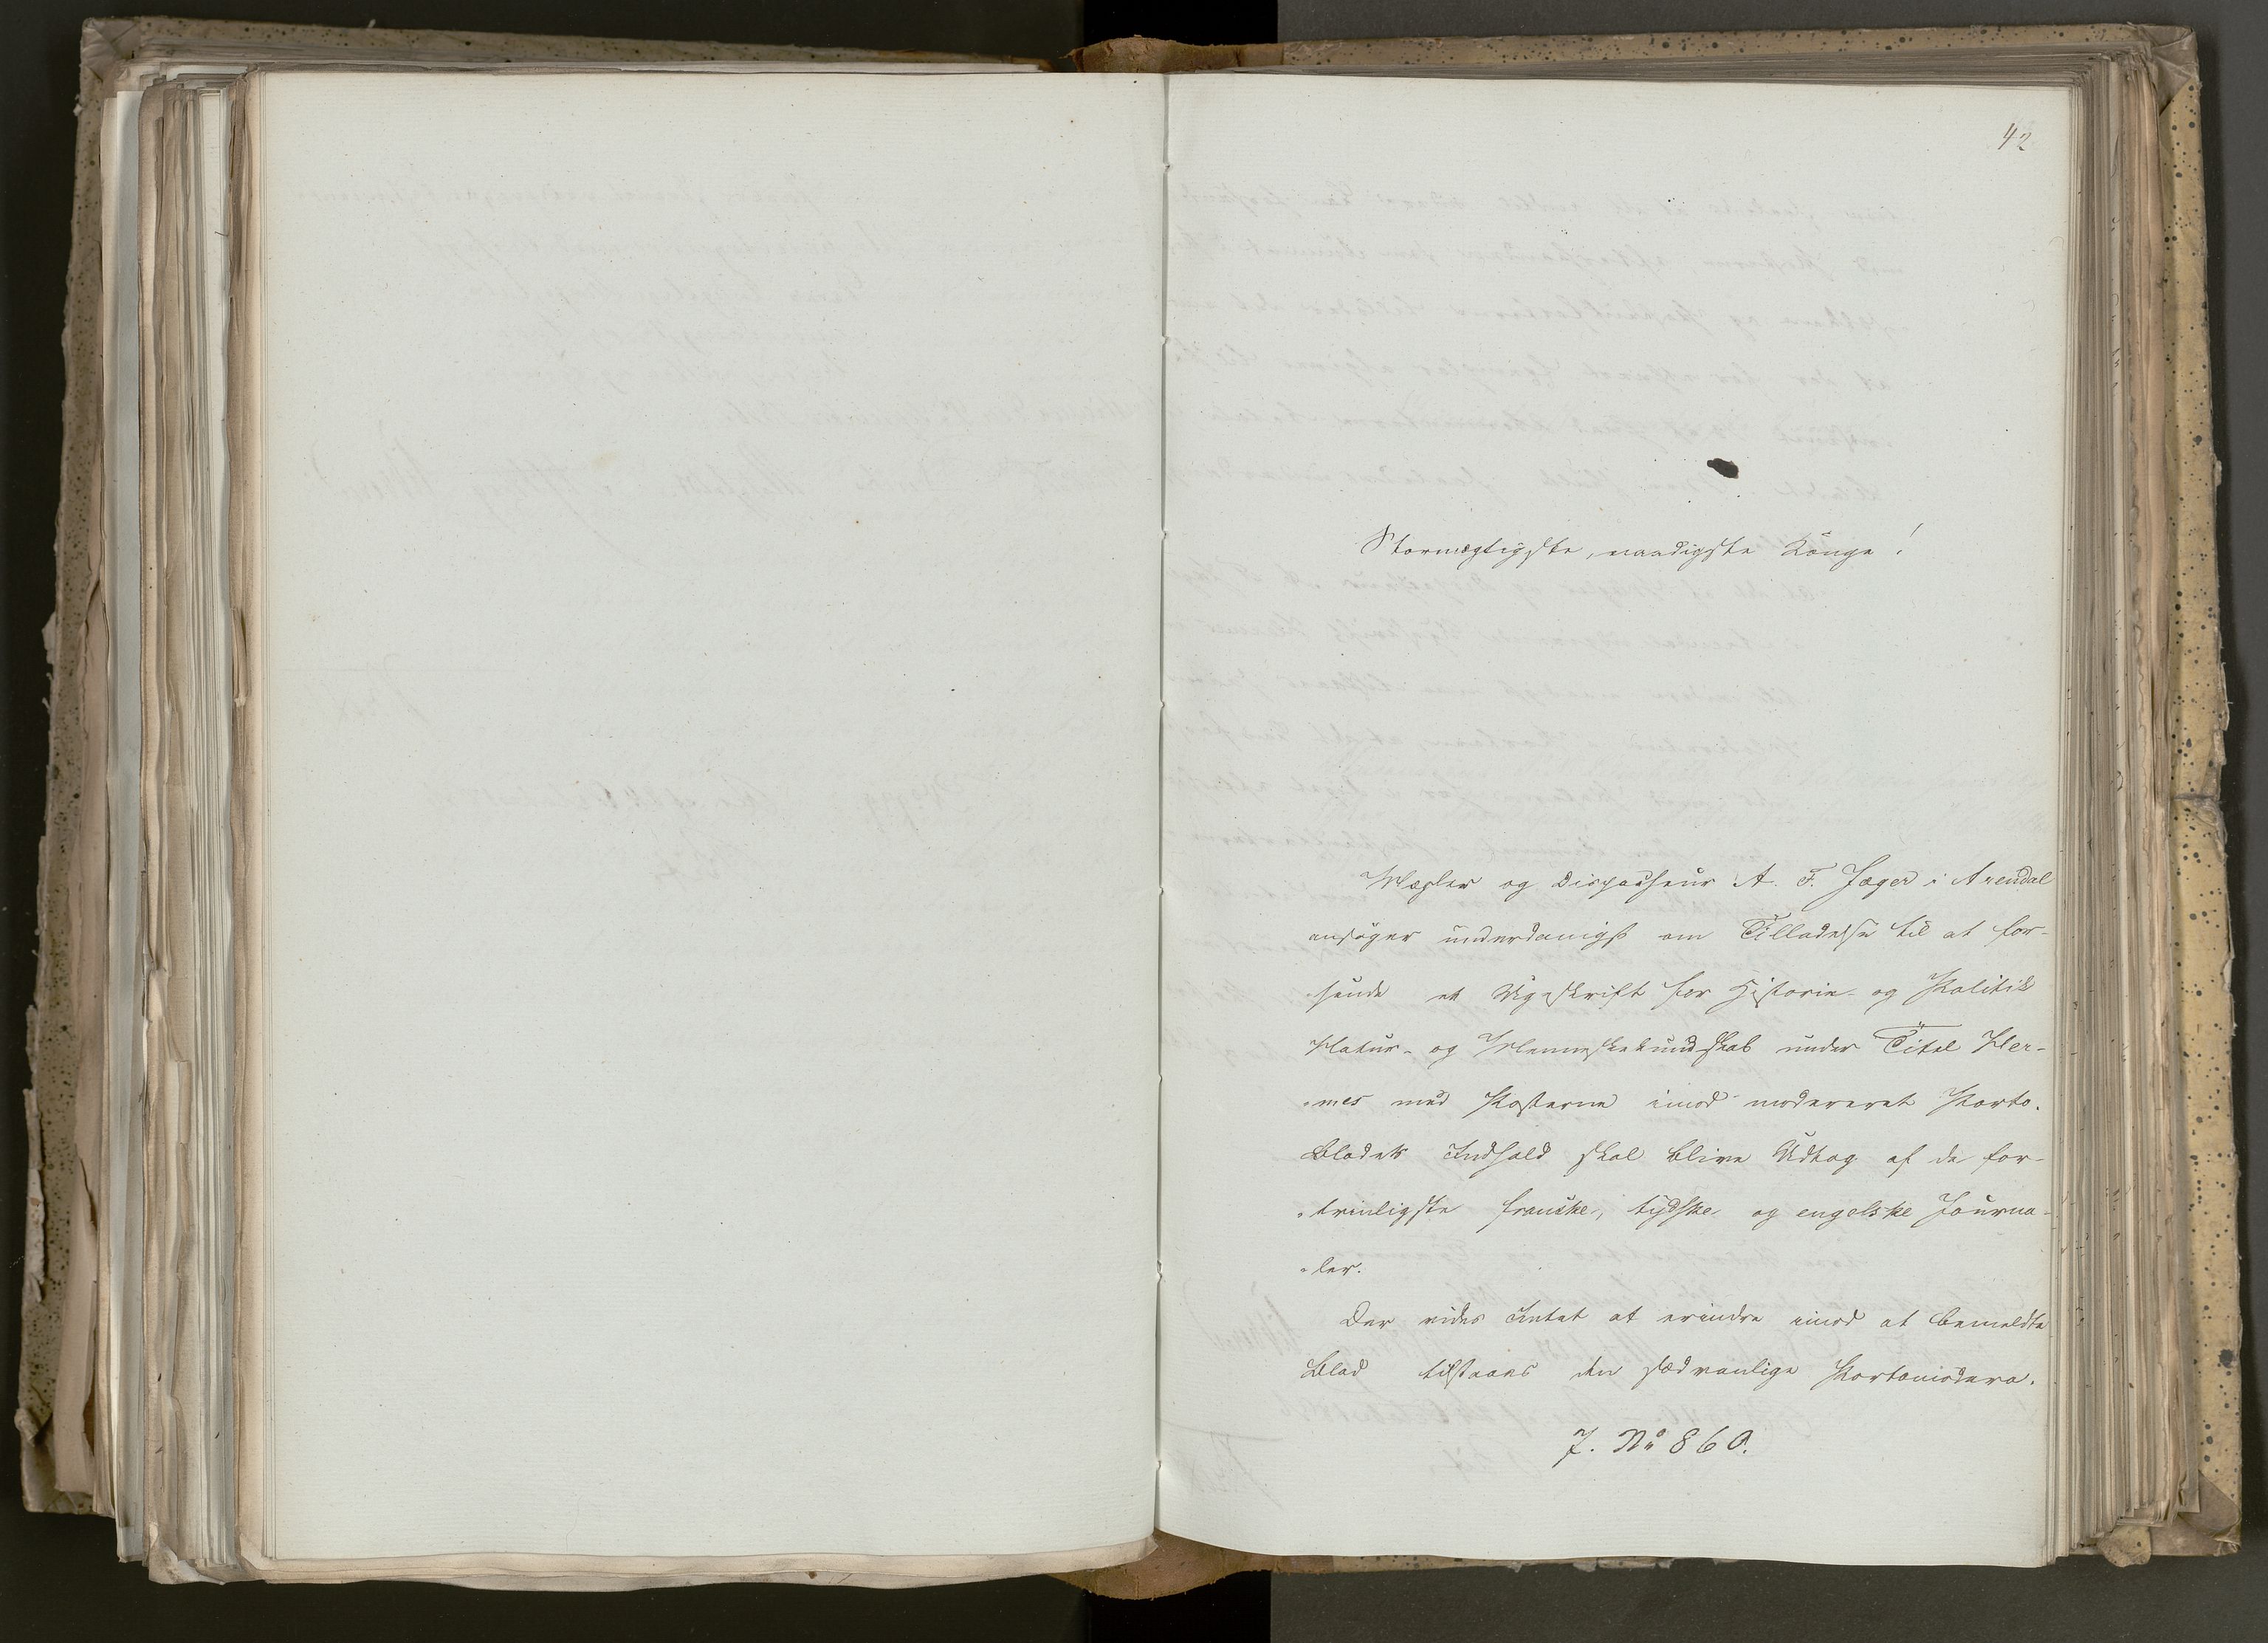 42
Stormægtigste, naadigste Konge!
Mægler og Dispascheur A. F. Jæger i Arendal
ansøger underdanigst om Tilladelse til at for-
sende et Ugeskrift for Historie- og Politik
Natur- og Menneskekundskab under Titel Her-
-mes med Posterne imod modereret Porto.
Bladets Indhold skal blive Udtog af de for-
-trinligste franske, tydske og engelske Journa-
-ler.
Der vides Intet at erindre imod at bemeldte
Blad tilstaaes den sædvanlige Portomodera.
J. No 860.